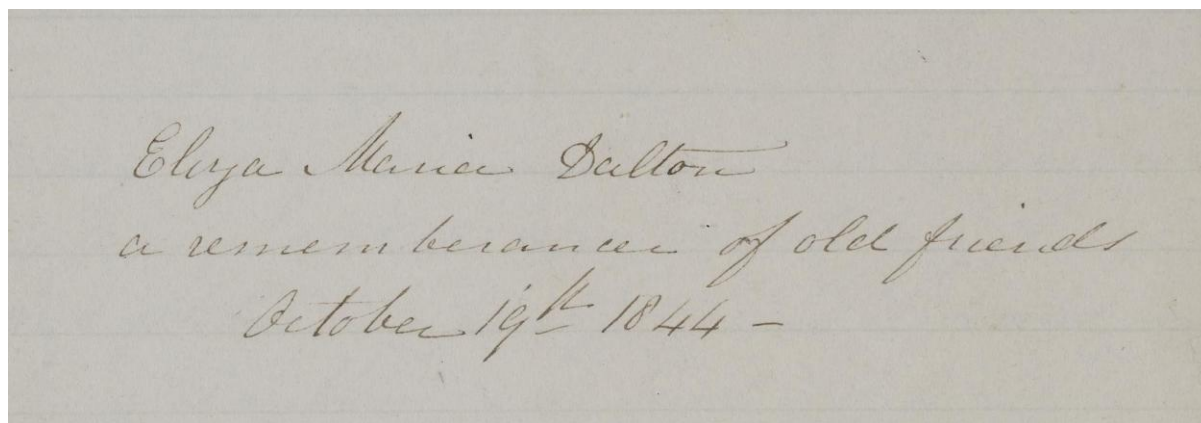 Eliza Maria Dalton
a rememberance of old friends
October 19th 1844 -